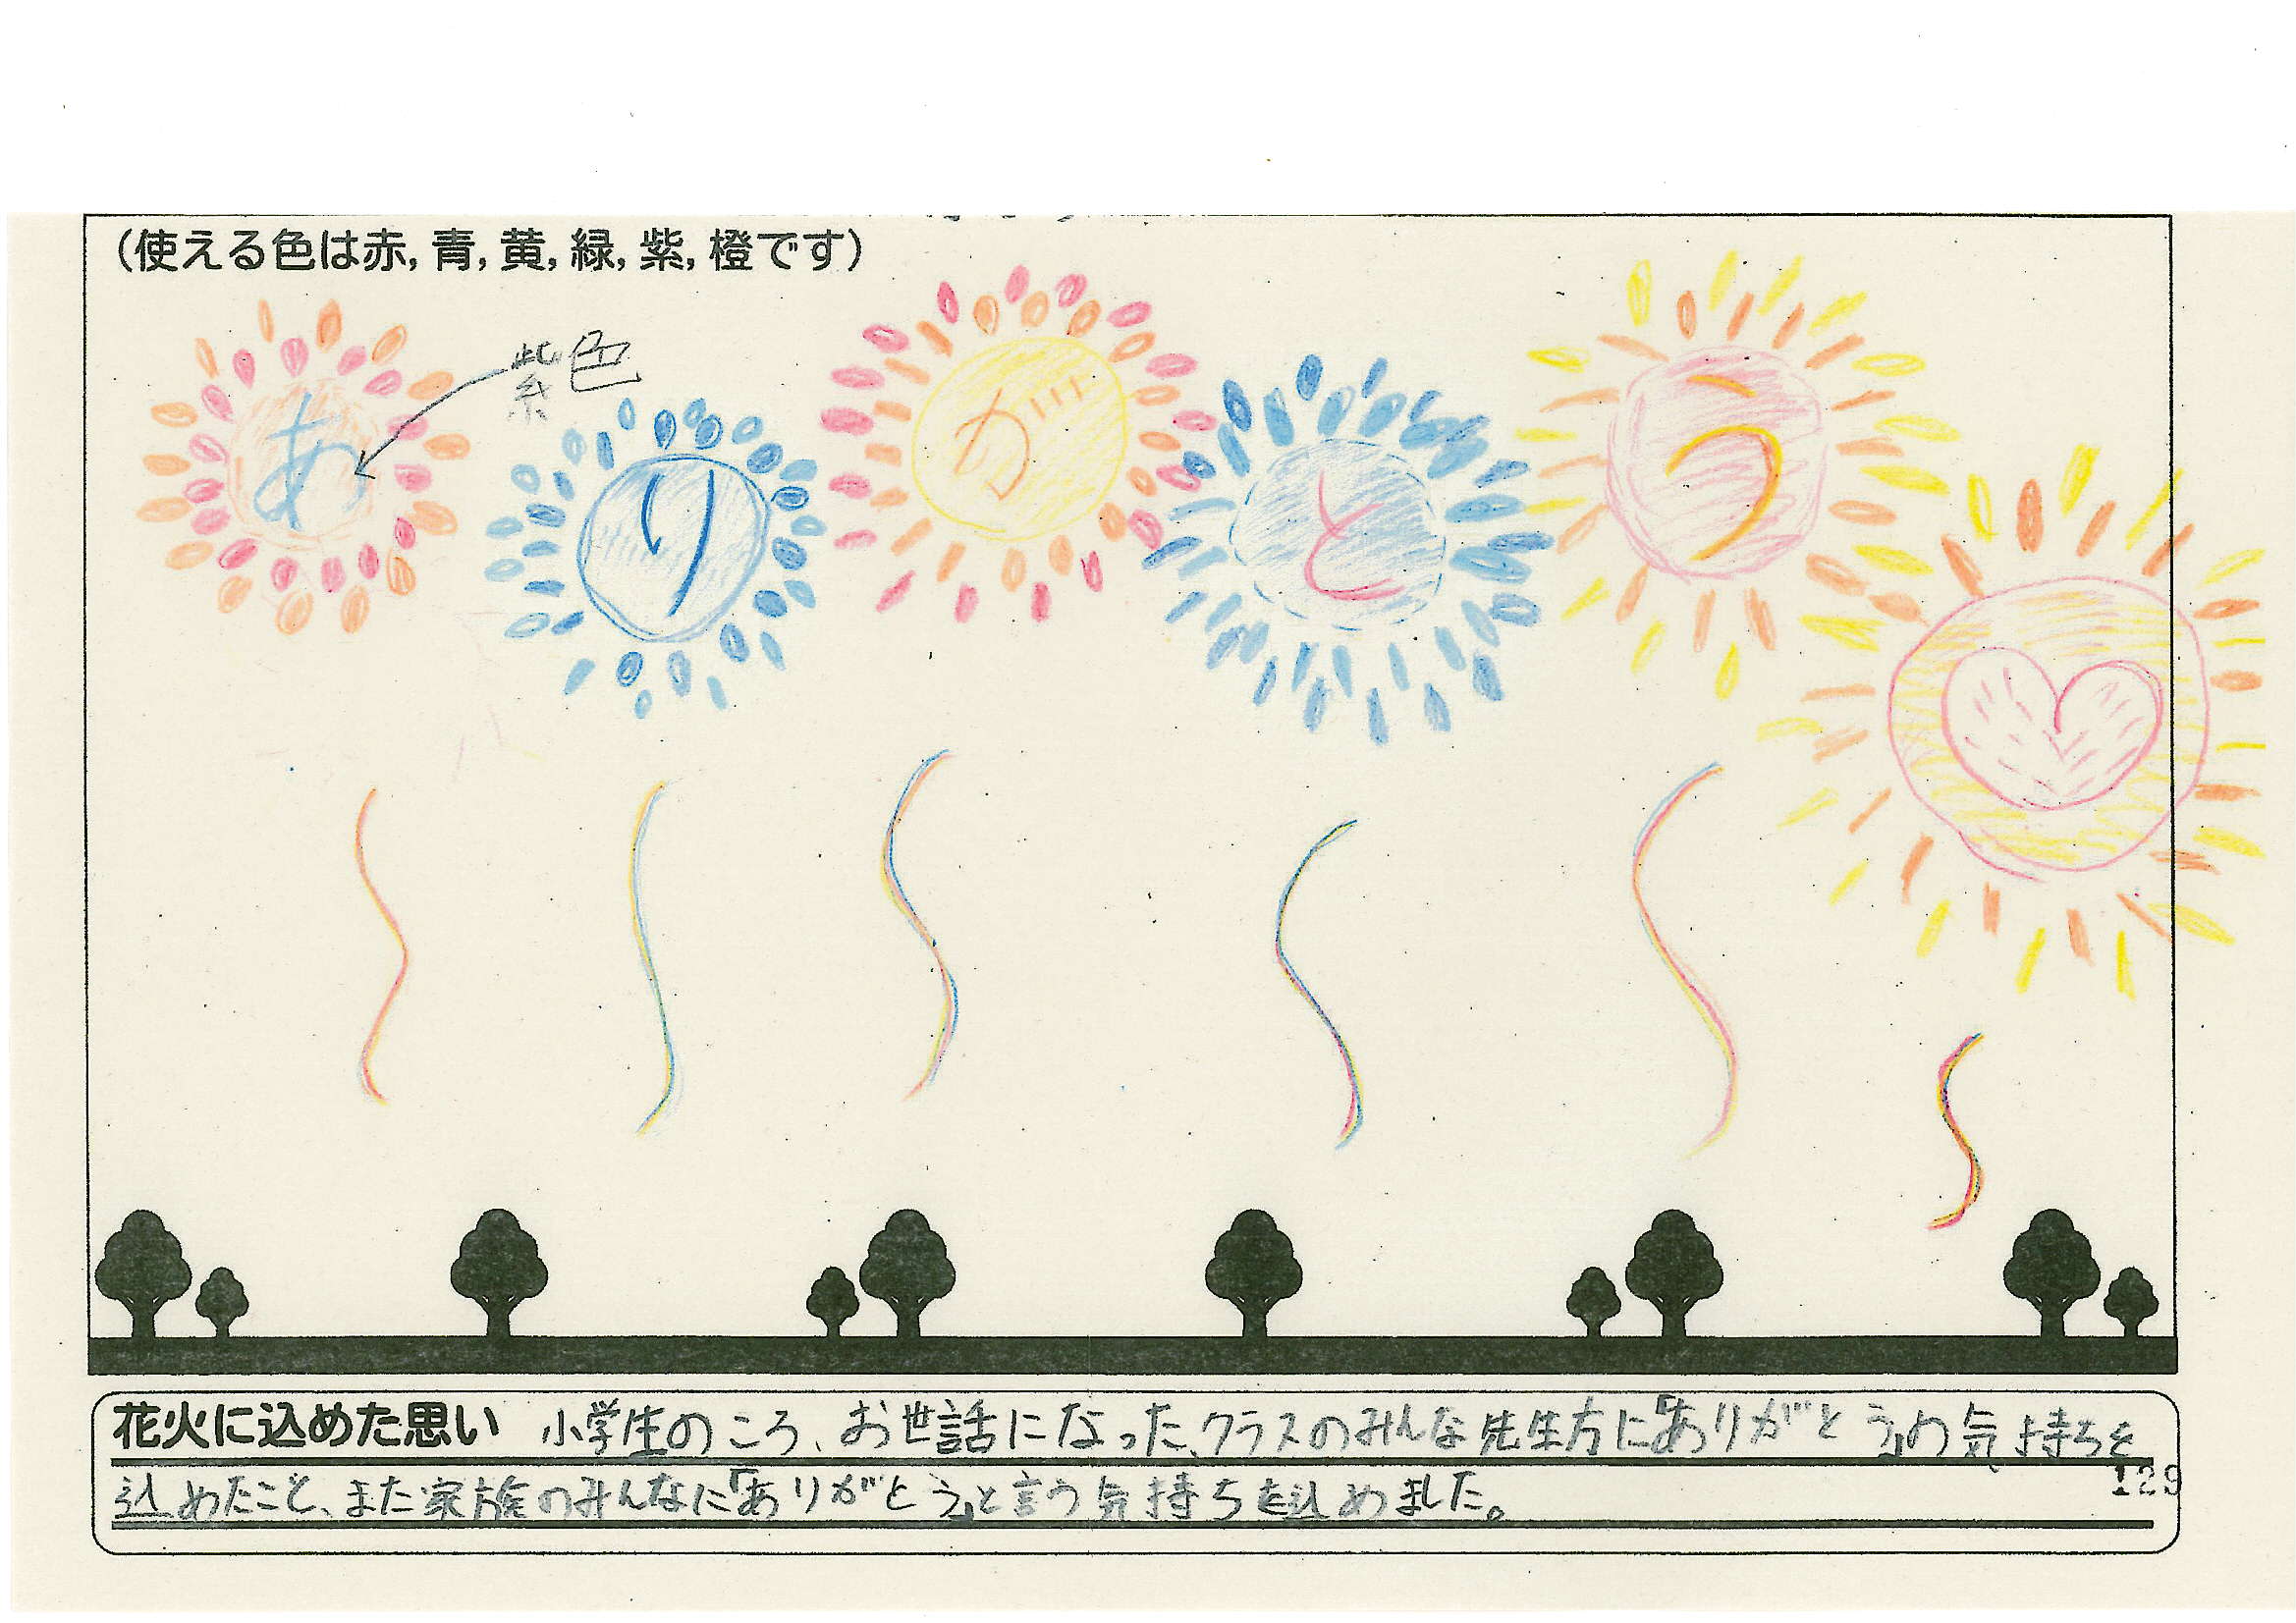 (使える色は赤,青,黄,緑,紫,橙です)
紫色
あ
り
が
と
う
花火に込めた思い 小学生のころ、お世話になった、クラスのみんな先生方に「ありがとう」の気持ちを
込めたこと、また家族のみんなに「ありがとう」と言う気持ちを込めました。
129